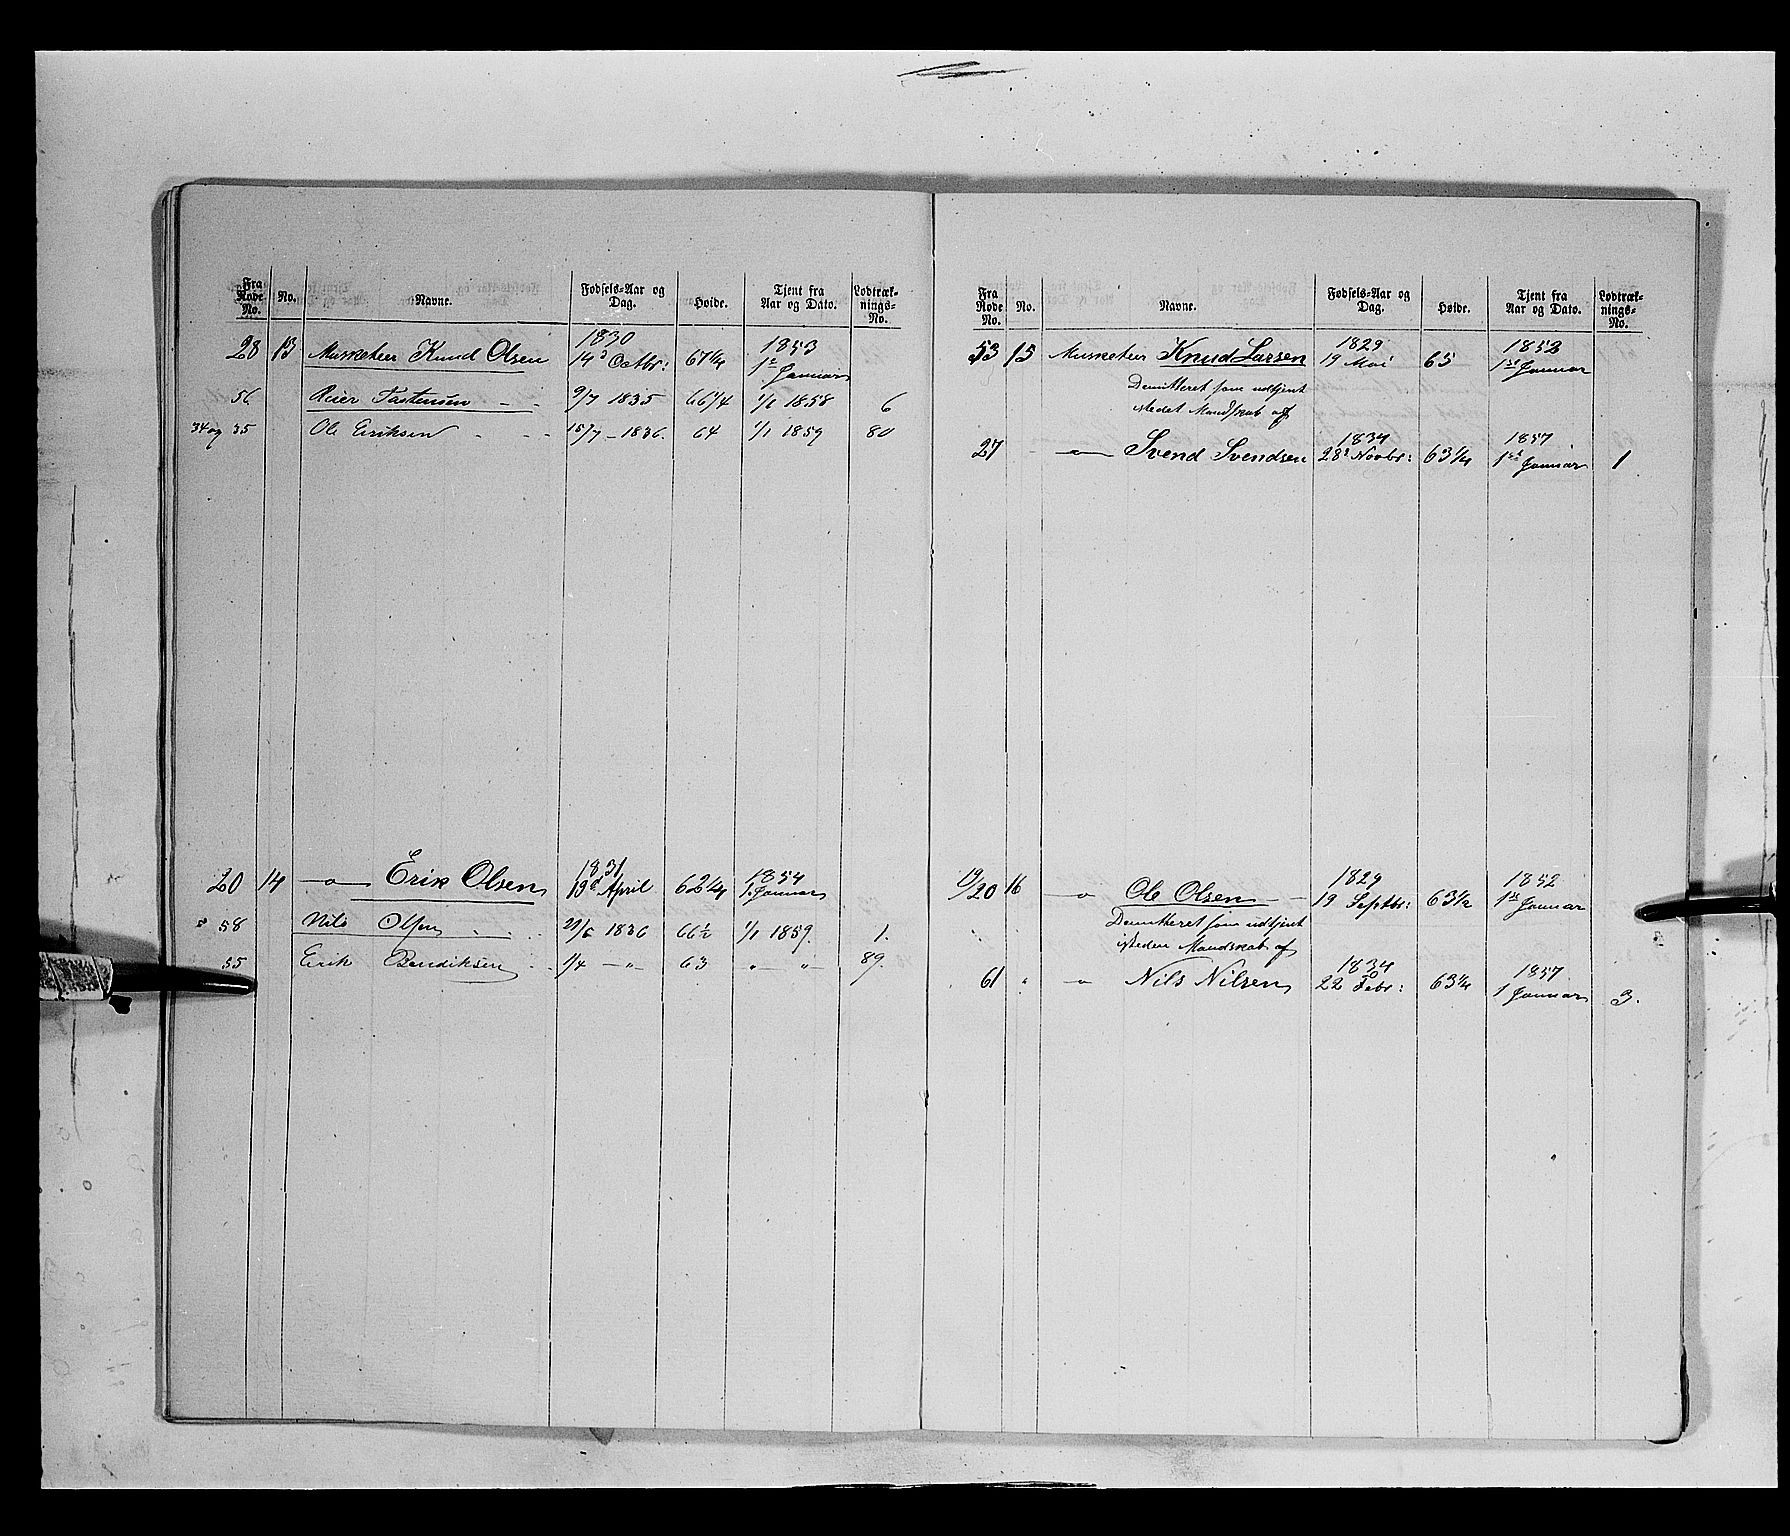 Fra Rode No. No. Navne. Fødsels-Aar og Dag. Høide. Tjent fra Aar og Dato. Lodtræknings-No.
1830 1853
28 13 Musketeer Knud Olsen 14d Octbr: 67 1/4 1te Januar
56 Reier Tostensen - - 9/7 1835 66 1/4 1/1 1858 6
34 og 35 Ole Eriksen - - - 15/7 - 1836. 64 1/1 1859 80
1831 1854
20 14 —〃— Erik Olsen 19d April 62 1/4 1. Januar
58 Nils Olsen 66 1/2 1/1 1859. 1.
55 Erik Bendiksen 1/4 -〃- 63 〃—〃— 89.
Fra Rode No. No. Navne. Fødsels-Aar og Dag. Høide. Tjent fra Aar og Dato. Lodtræknings-No.
1829 1852
53 15 Musketeer Knud Larsen 19 Mai 65 1ste Januar
Demitteret som udtjent
istedet Mandskab af
1834 1857
27 —〃— Svend Svendsen 28d Novbr: 63 1/4 1ste Januar 1
1829 1852
19/20 16 —〃— Ole Olsen - - 19 Septbr: 63 1/2 1ste Januar
Demitteret som udtjent
isteden Mandskab af
1834 1857
61 〃 —〃— Nils Nilsen 22 Febr: 63 1/4 1 Januar 3.